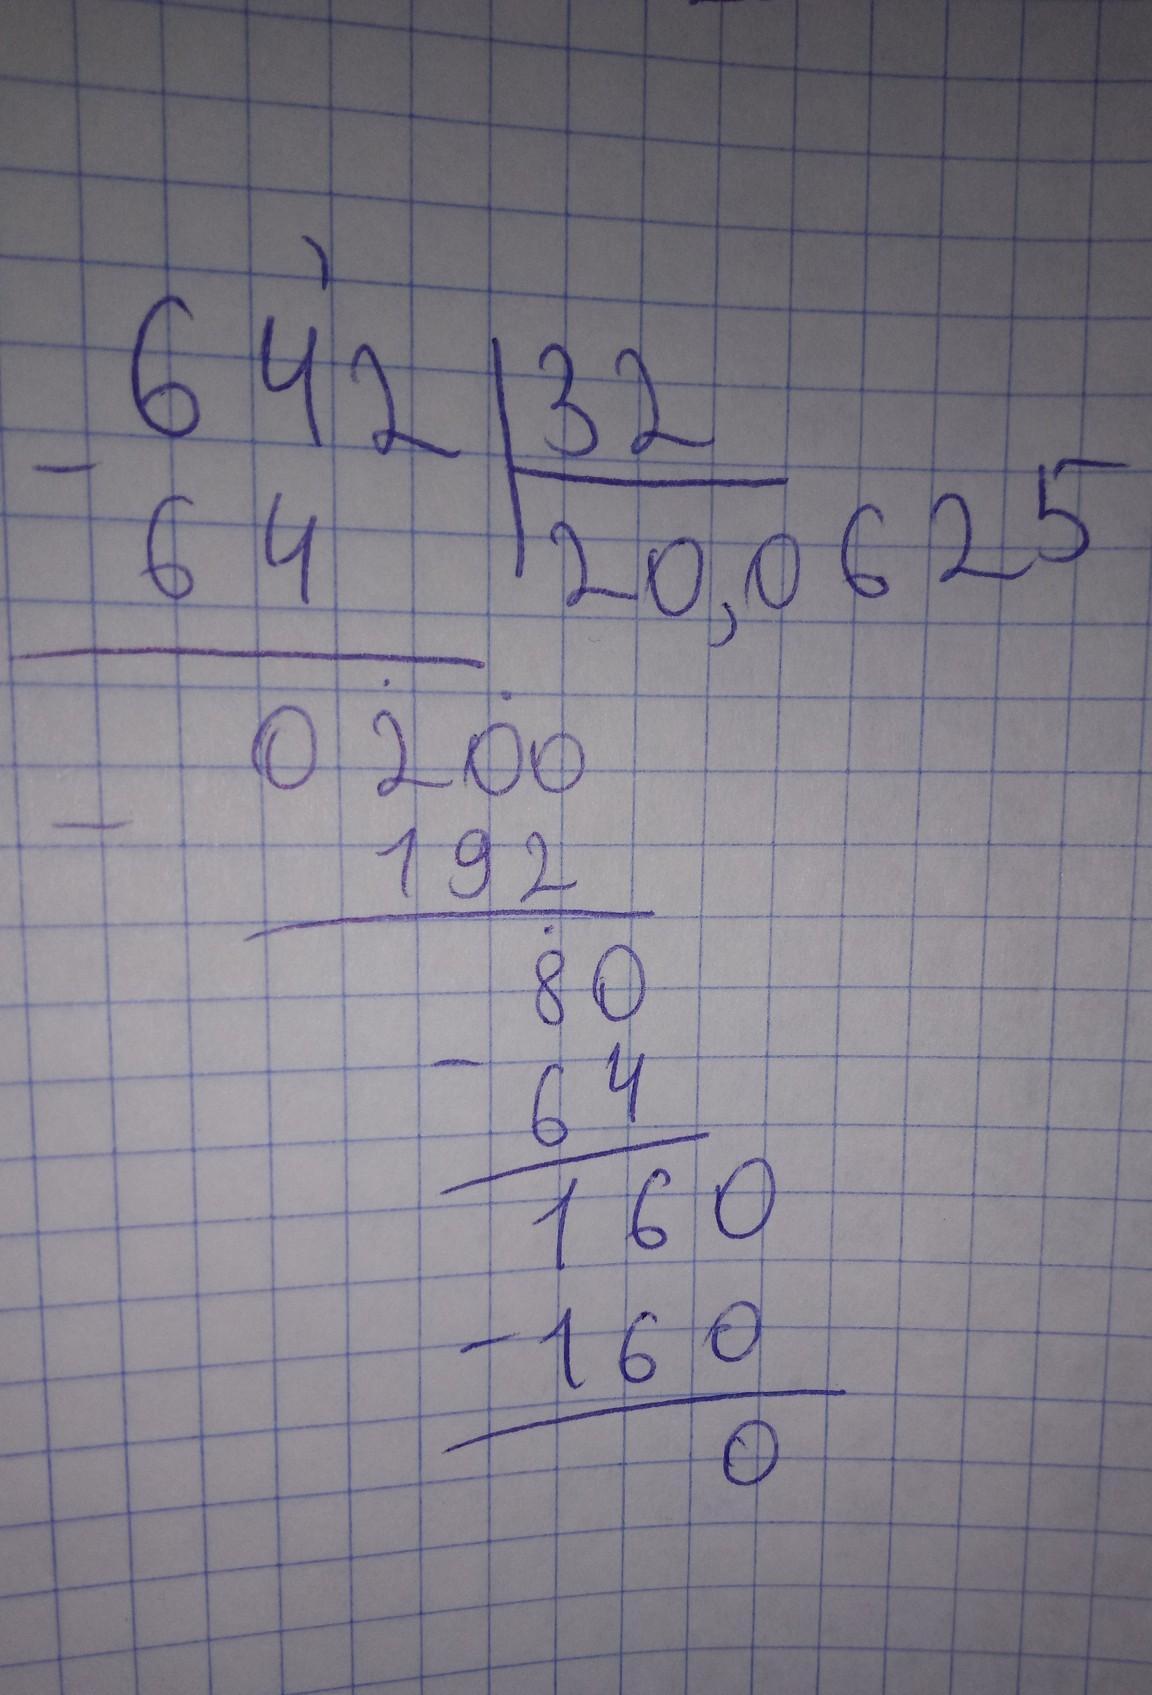 642 32
- 64 20,0625
0200
- 192
80
- 64
160
- 160
0